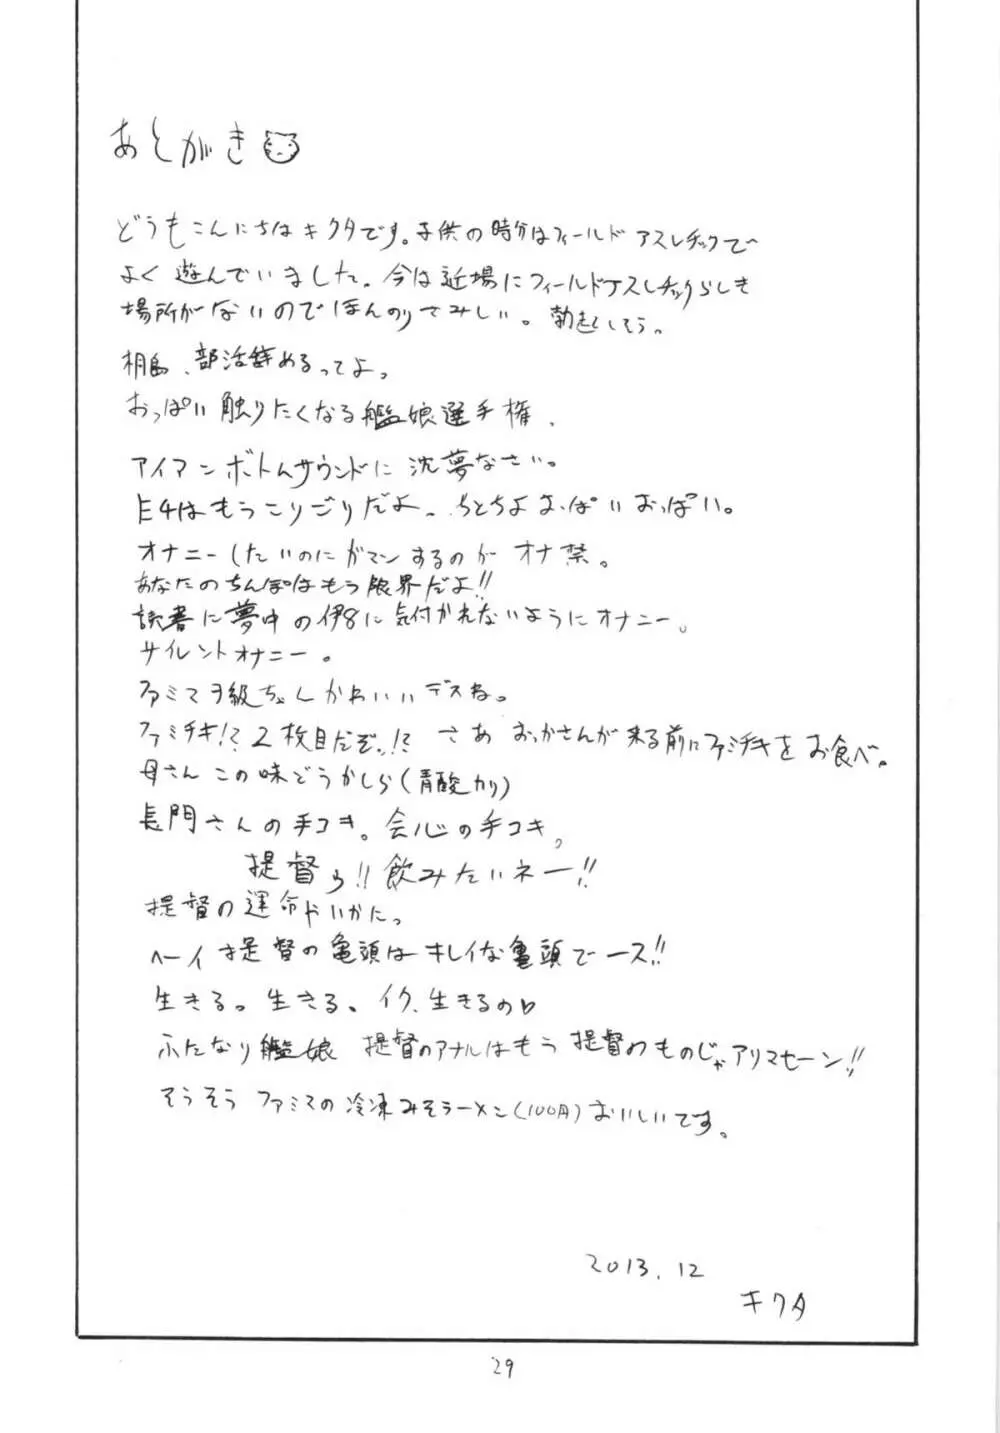 あとがき
どうもこんにちはキクタです。子供の時分はフィールドアスレチックで
よく遊んでいました。今は近場にフィールドアスレチックらしき
場所がないのでほんのりさみしい。勃起しそう。
桐島、部活辞めるってよ。
おっぱい触りたくなる艦娘選手権、
アイアンボトムサウンドに沈夢なさい。
E4はもうこりごりだよ〜ちとちよおっぱいおっぱい。
オナニーしたいのにガマンするのがオナ禁。
あなたのちんぽはもう限界だよ!!
読書に夢中の伊8に気付かれないようにオナニー。
サイレントオナニー。
ファミマヲ級ちゃんかわいいデスね。
ファミチキ!? 2枚目だぞっ!? さあおっかさんが来る前にファミチキをお食べ。
母さんこの味どうかしら(青酸カリ)
長門さんの手コキ。会心の手コキ。
提督ぅ!!飲みたいネー!!
提督の運命やいかに。
ヘーイ提督の亀頭はキレイな亀頭でース!!
生きる。生きる、イク、生きるの♡
ふたなり艦娘 提督のアナルはもう提督のものじゃアリマセーン!!
そうそうファミマの冷凍みそラーメン(100円)おいしいです。
2013.12
キクタ
29